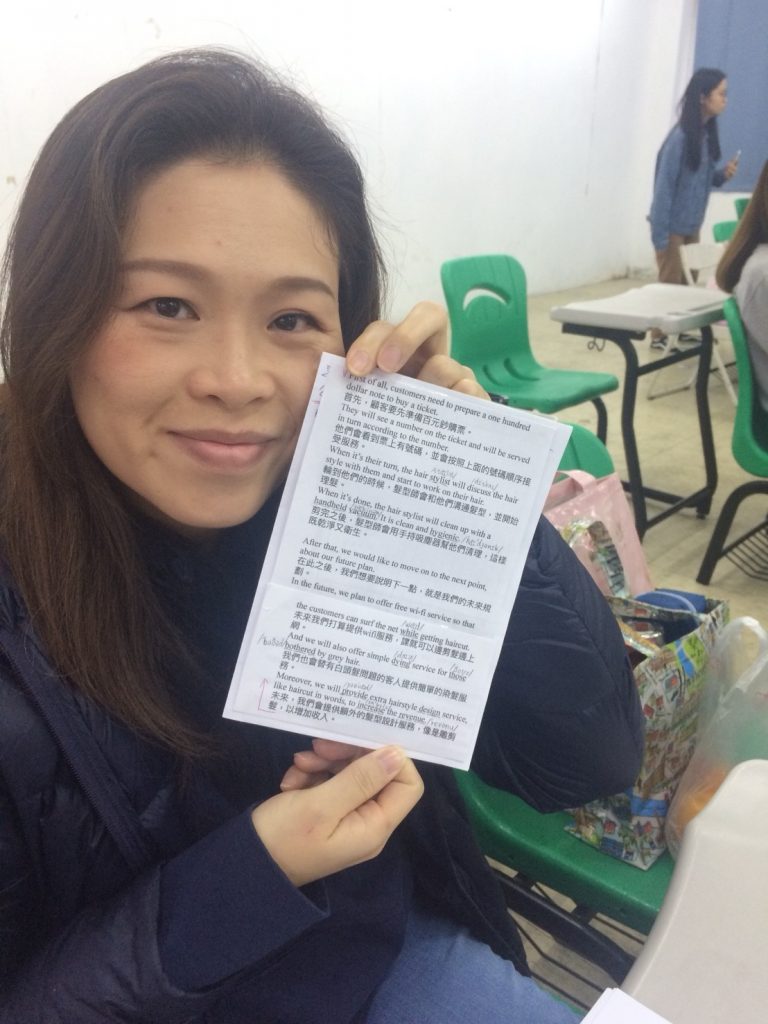 First of all, customers need to prepare a one hundred
dollar note to buy a ticket.
首先，顧客要先準備百元鈔購票。
They will see a number on the ticket and will be served
in turn according to the number.
他們會看到票上有號碼，並會按照上面的號碼順序接
受服務。
When it's their turn, the hair stylist will discuss the hair
style with them and start to work on their hair.
輪到他們的時候，髮型師會和他們溝通髮型，並開始
理髮。
When it's done, the hair stylist will clean up with a
handheld vacuum. It is clean and hygienic.
剪完之後，髮型師會用手持吸塵器幫他們清理，這樣
既乾淨又衛生。
After that, we would like to move on to the next point,
about our future plan.
在此之後，我們想要說明下一點，就是我們的未來規
劃。
In the future, we plan to offer free wi-fi service so that
the customers can surf the net while getting haircut.
未來我們打算提供wifi服務，讓就可以邊剪髮邊上
網。
And we will also offer simple dying service for those
bothered by grey hair.
我們也會替有白頭髮問題的客人提供簡單的染髮服
務。
Moreover, we will provide extra hairstyle design service,
like haircut in words, to increase the revenue.
未來，我們會提供額外的髮型設計服務，像是雕剪
髮，以增加收入。